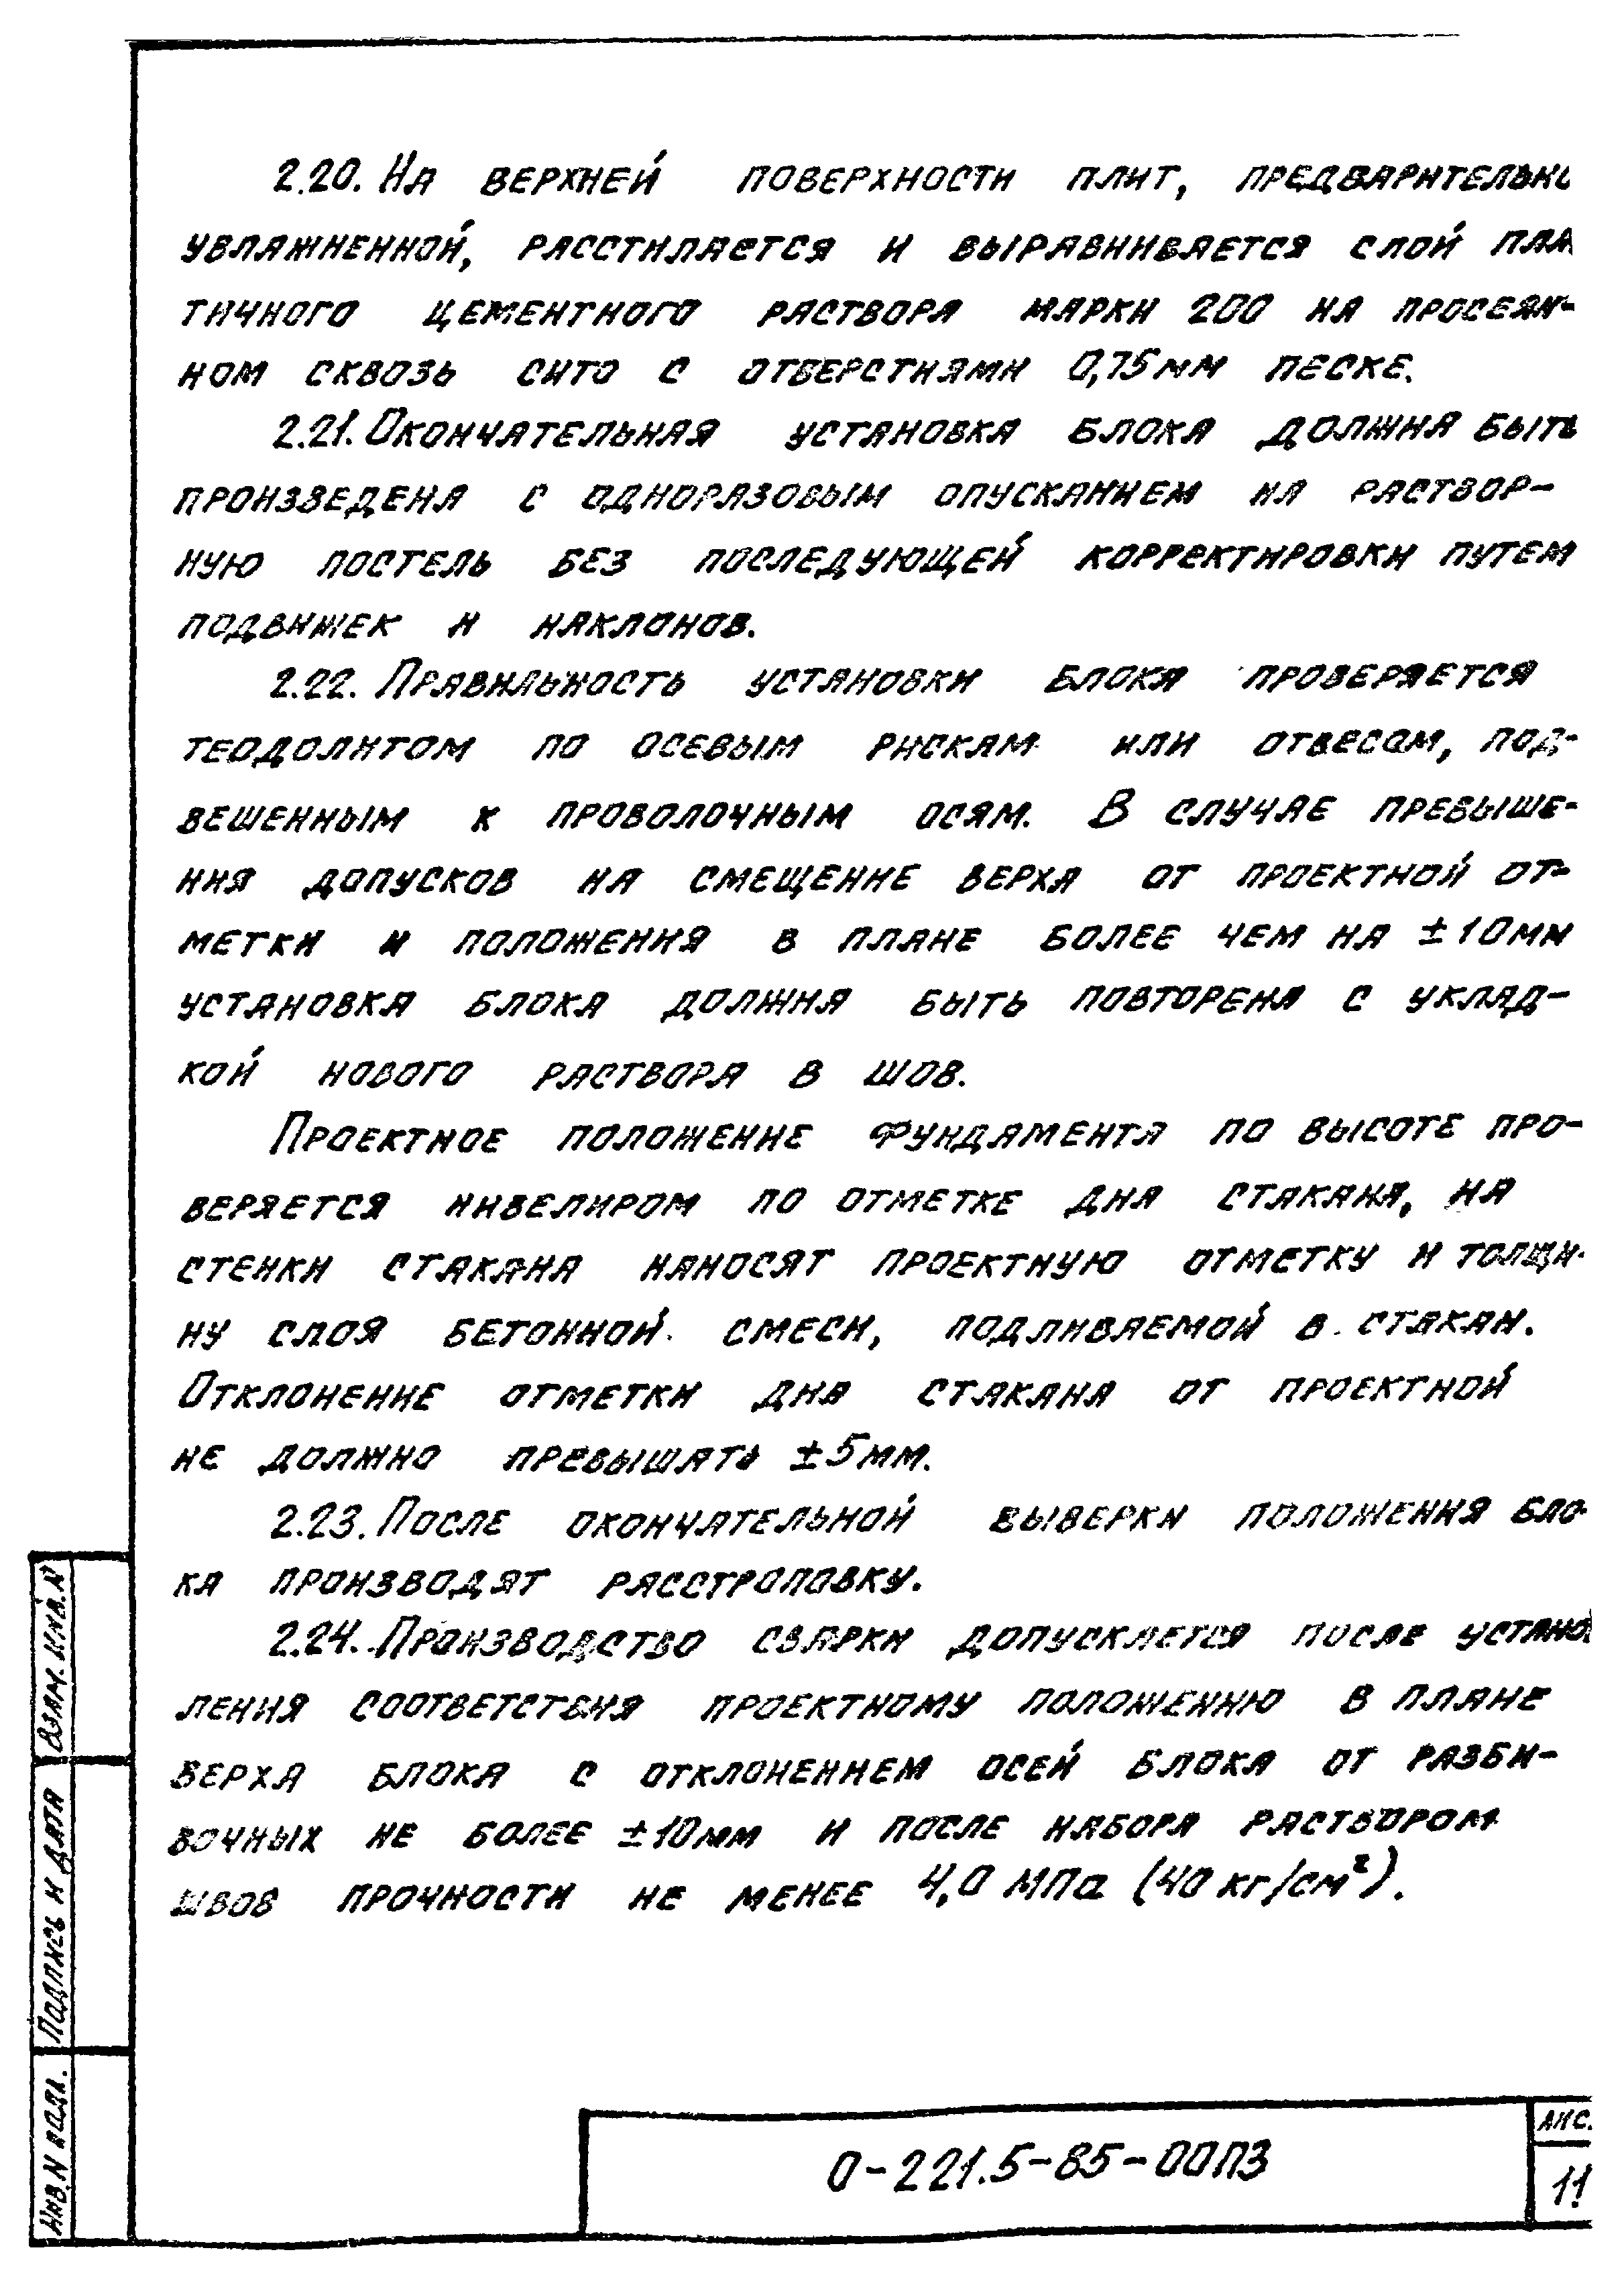 2.20. На верхней поверхности плит, предварительно
увлажненной, расстилается и выравнивается слой плас
тичного цементного раствора марки 200 на просеян-
ном сквозь сито с отверстиями 0,75мм песке.
2.21. Окончательная установка блока должна быть
произведена с одноразовым опусканием на раствор-
ную постель без последующей корректировки путем
подвижек и наклонов.
2.22. Правильность установки блока проверяется
теодолитом по осевым рискам или отвесам, под-
вешенным к проволочным осям. В случае превыше-
ния допусков на смещение верха от проектной от-
метки и положения в плане более чем на ±10мм
установка блока должна быть повторена с уклад-
кой нового раствора в шов.
Проектное положение фундамента по высоте про-
веряется нивелиром по отметке дна стакана, на
стенки стакана наносят проектную отметку и толщи-
ну слоя бетонной смеси, подливаемой в стакан.
Отклонение отметки дна стакана от проектной
не должно превышать ±5мм.
2.23. После окончательной выверки положения бло-
ка производят расстроповку.
2.24. Производство сварки допускается после устано
ления соответствия проектному положению в плане
верха блока с отклонением осей блока от разби-
вочных не более ±10мм и после набора раствором
швов прочности не менее 4,0 МПа (40 кг/см²).
Взам. инв. N
Подпись и дата
Инв. N подл.
0-221.5-85-00ПЗ
Лис.
11